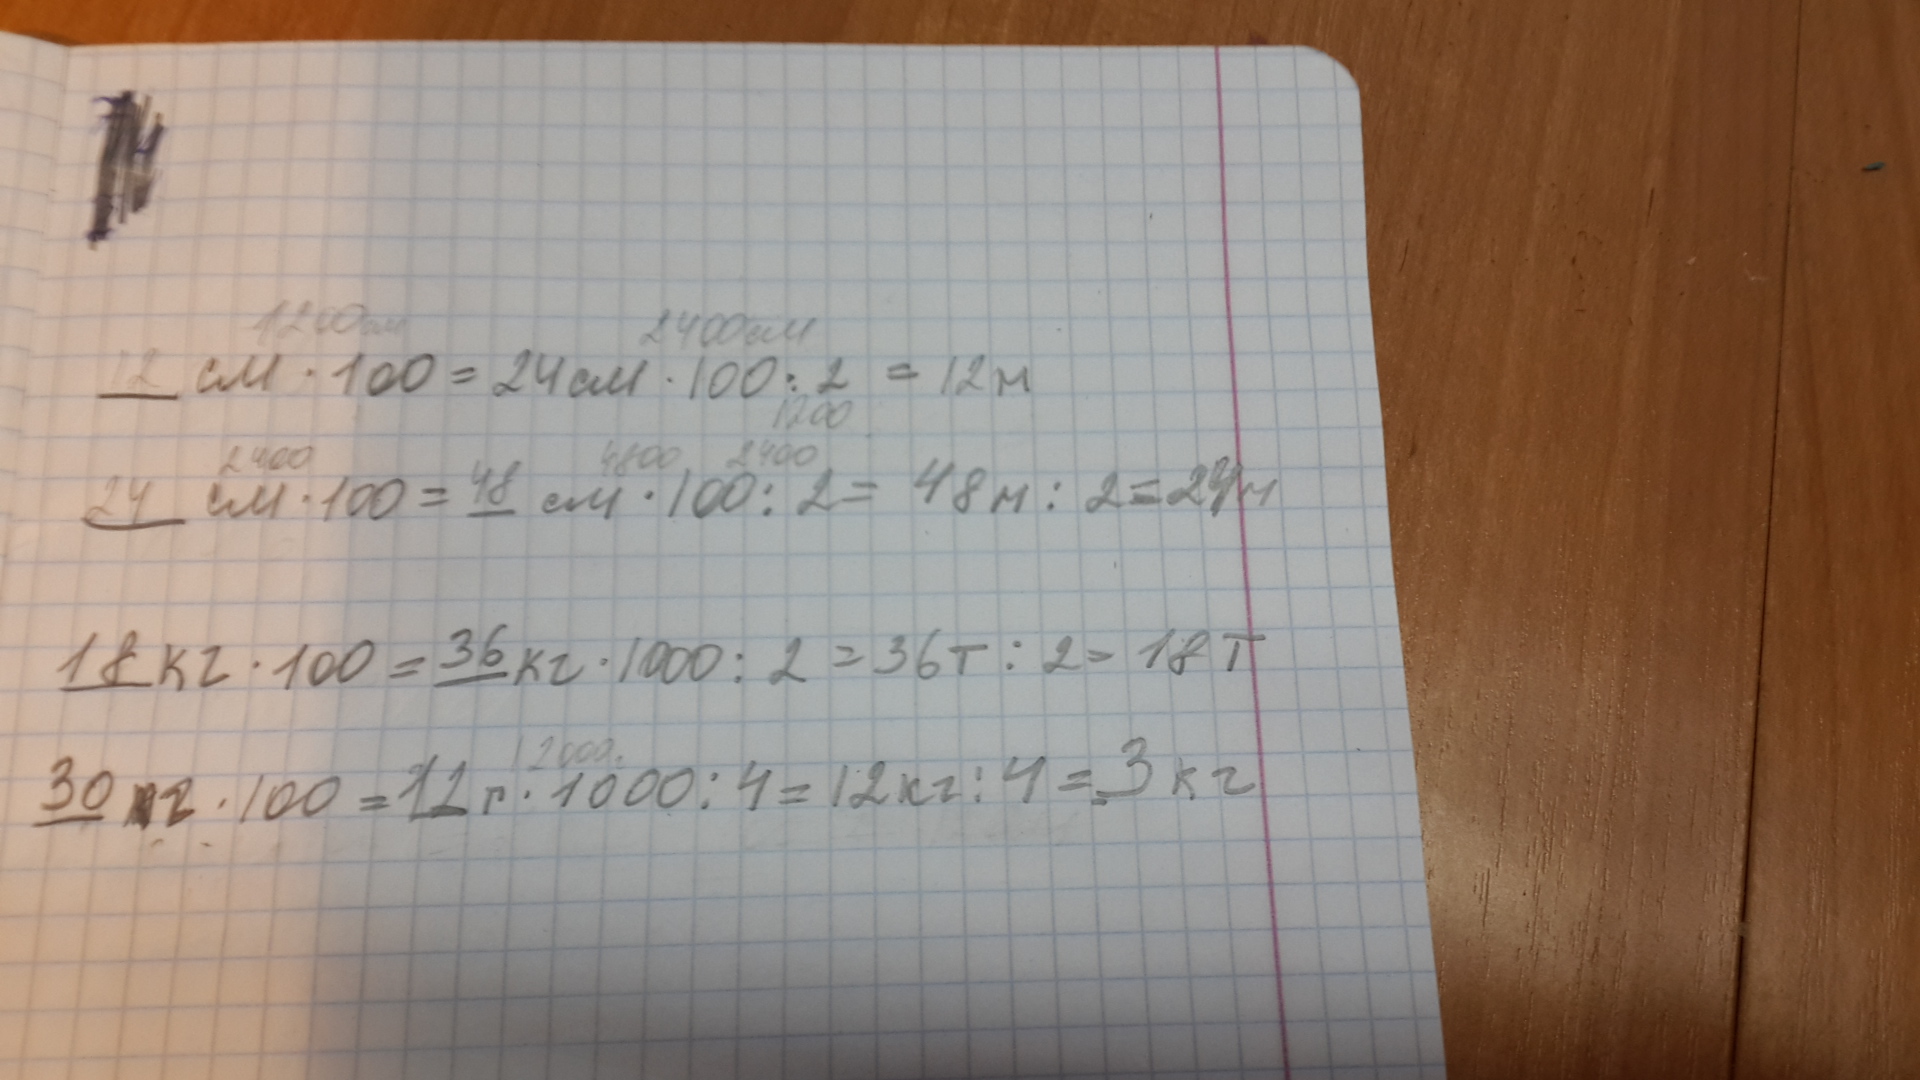 1200см 2400см
12 см · 100 = 24см · 100 : 2 = 12м
1200
2400 4800 2400
24 см · 100 = 48 см · 100 : 2 = 48м : 2 = 24м
18 кг · 100 = 36 кг · 1000 : 2 = 36т : 2 = 18т
12000
30 кг · 100 = 12 г · 1000 : 4 = 12кг : 4 = 3 кг